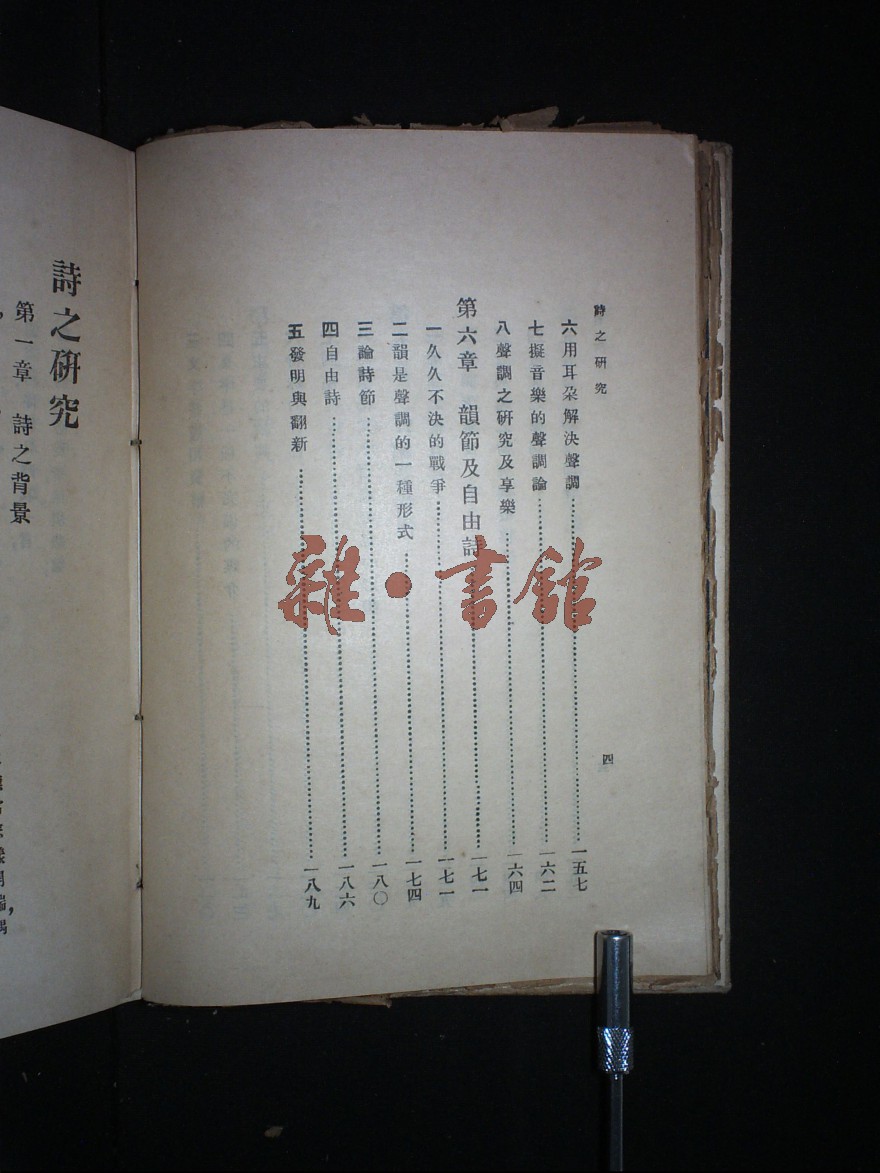 詩之研究
六用耳朵解決聲調…一五七
七擬音樂的聲調論…一六二
八聲調之研究及享樂…一六四
第六章 韻節及自由詩…一七一
一久久不決的戰爭…一七一
二韻是聲調的一種形式…一七四
三論詩節…一八〇
四自由詩…一八六
五發明與翻新…一八九
四
詩之研究
第一章 詩之背景
雜·書館